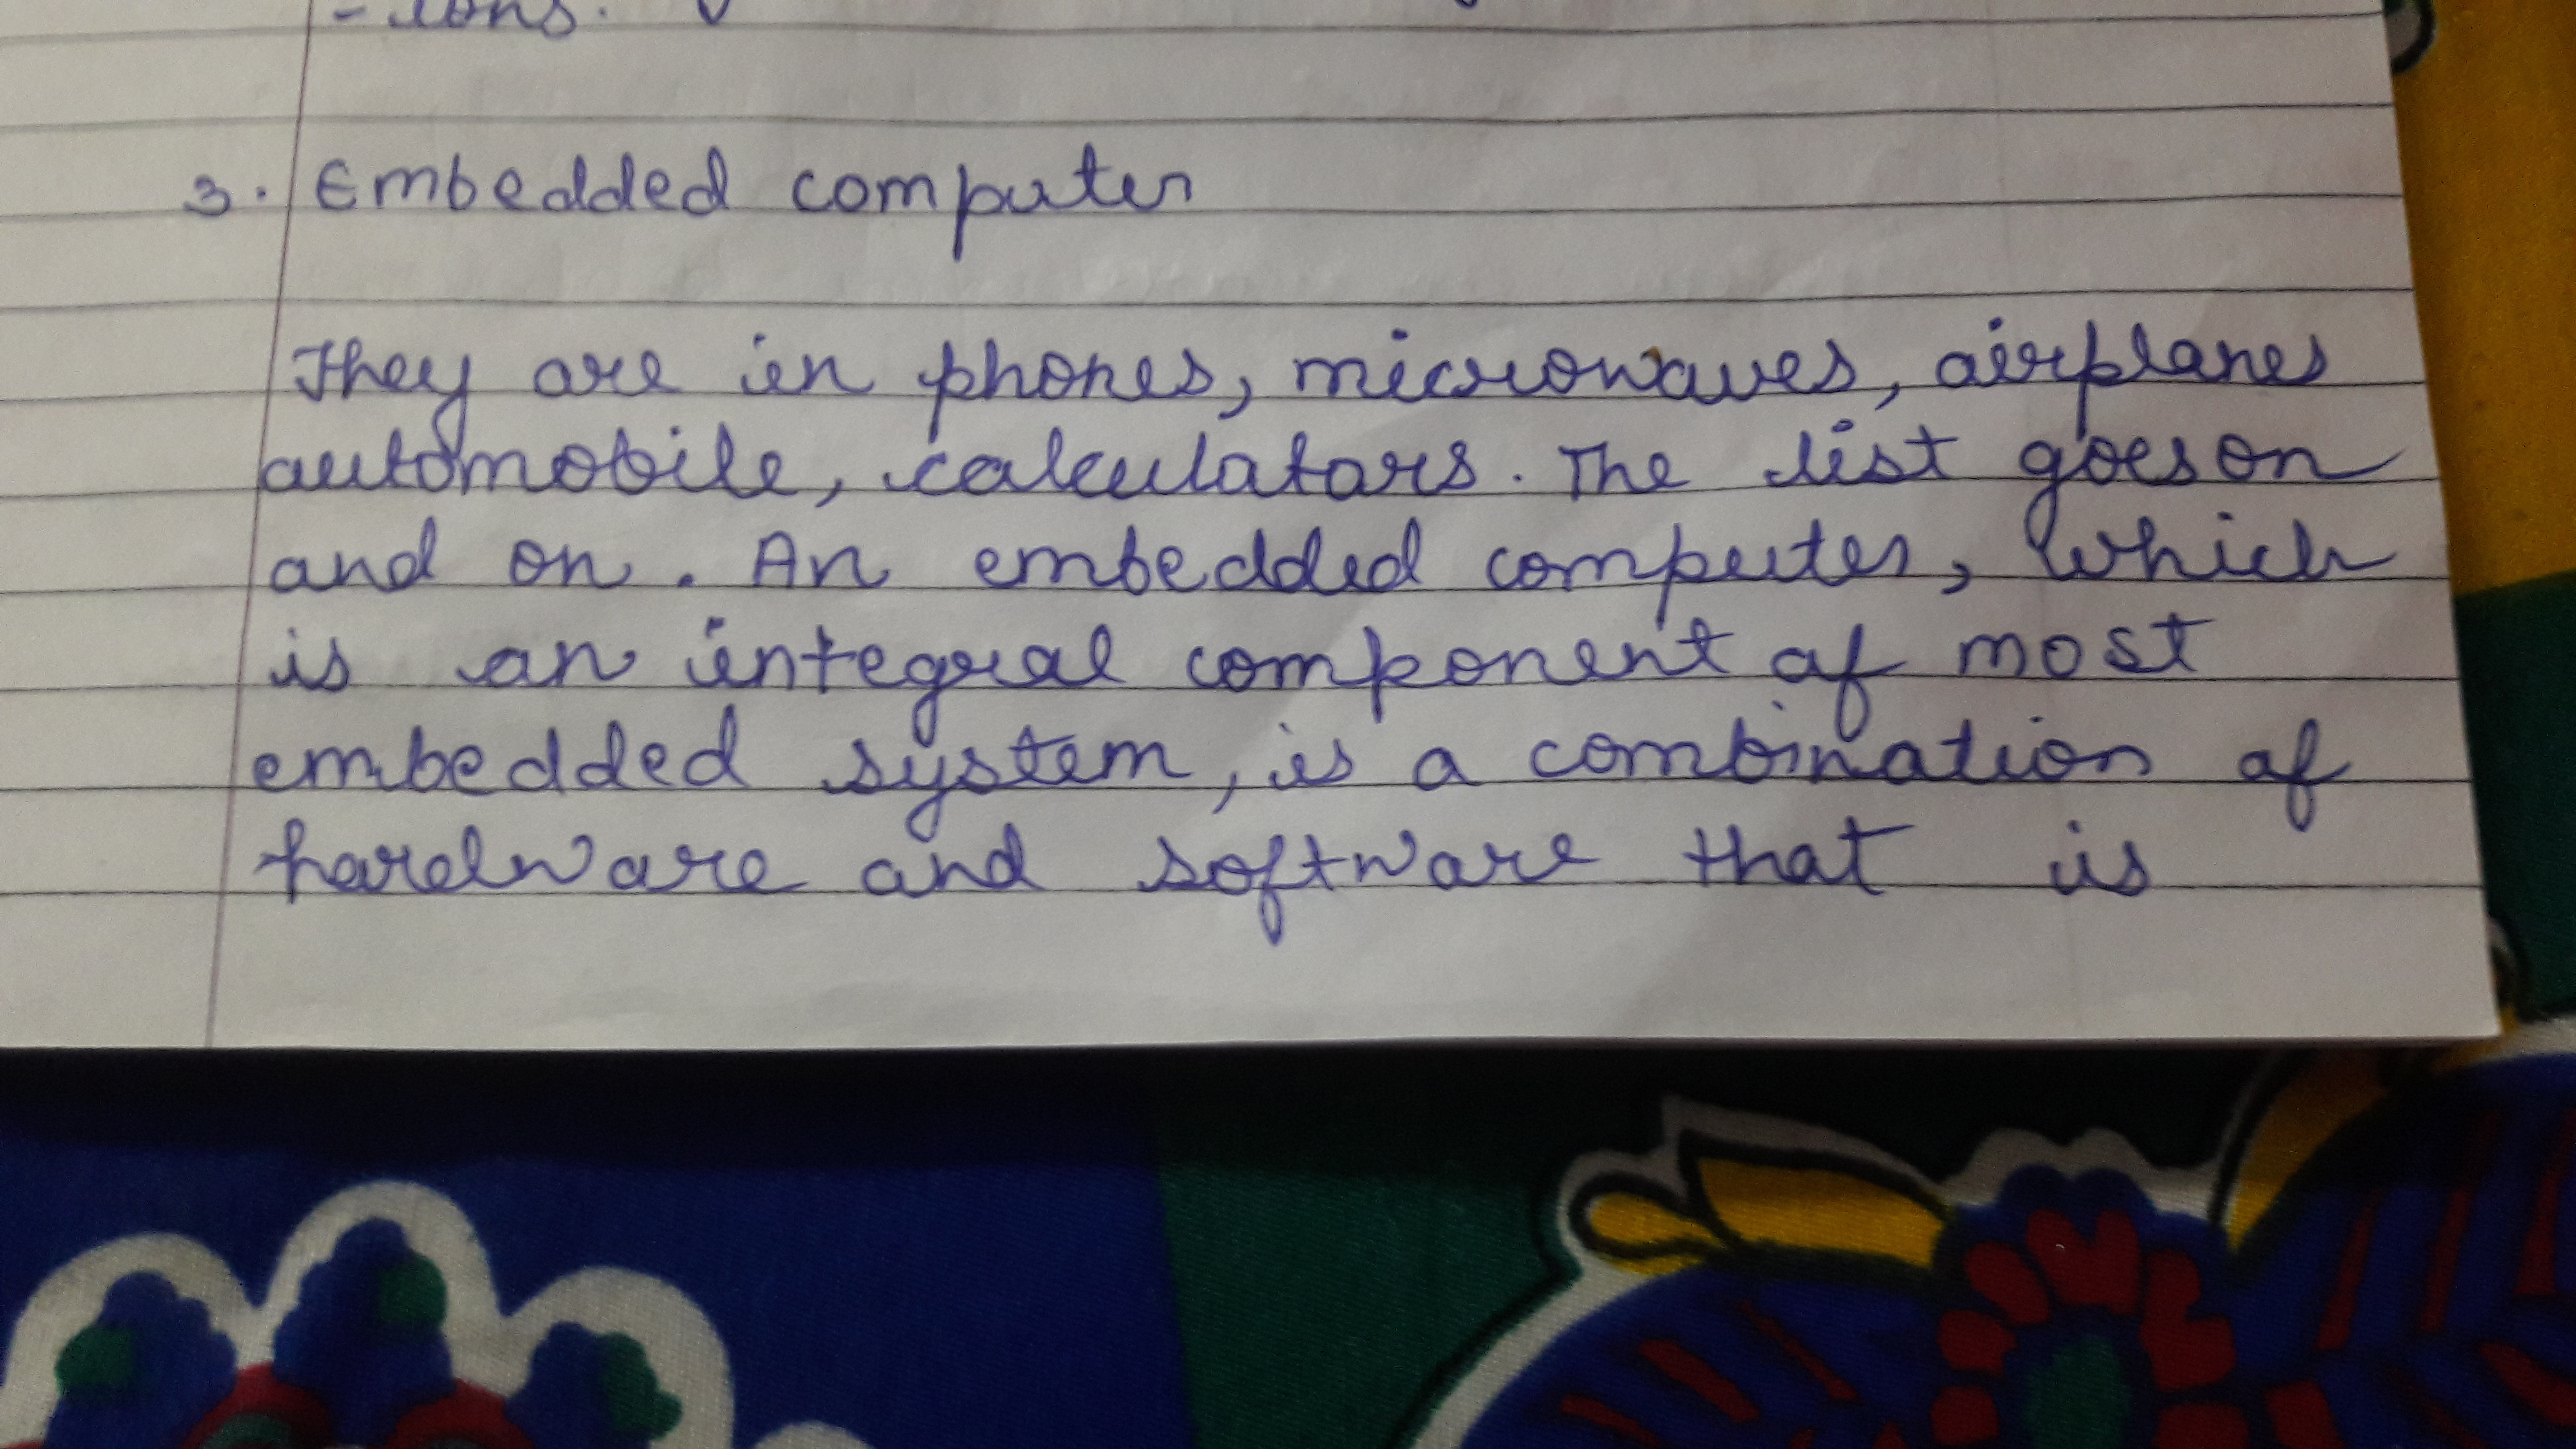 - ions.
3. Embedded computer
They are in phones, microwaves, airplanes
automobile, calculators. The list goes on
and on. An embedded computer, which
is an integral component of most
embedded system, is a combination of
hardware and software that is